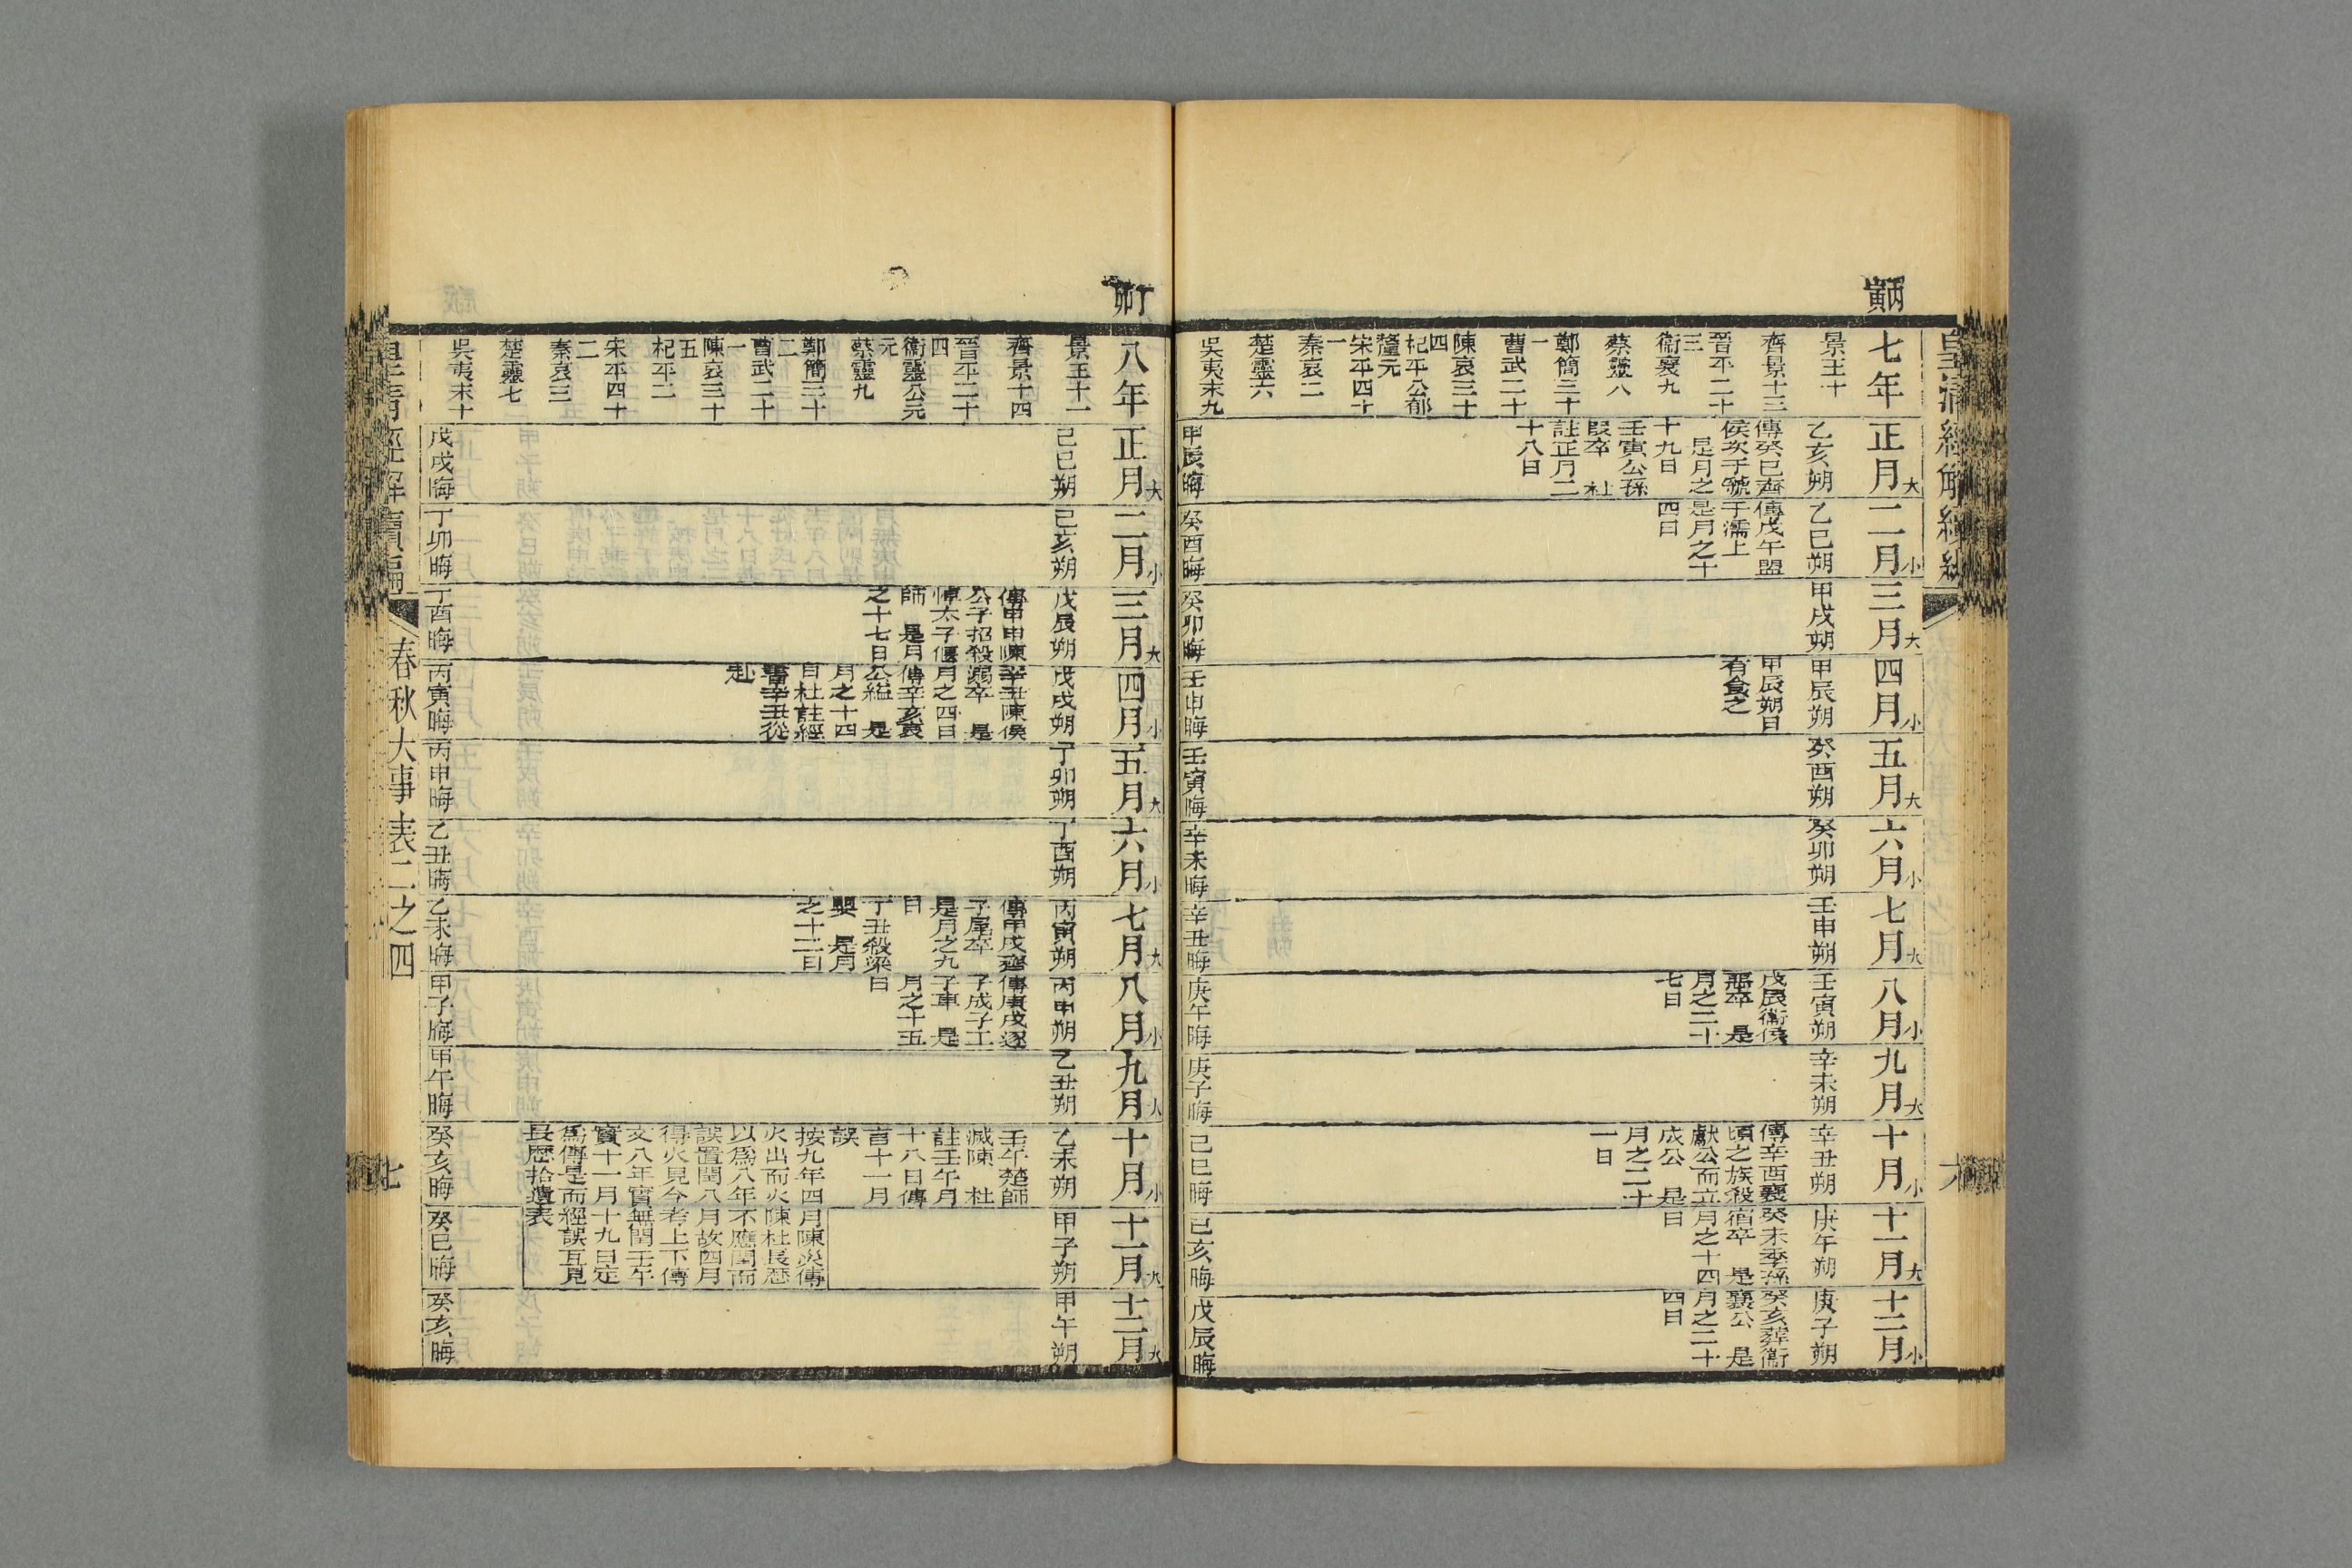 皇清經解續編
六
丙寅
七年
景王十
齊景十三
晉平二十
三
衞襄九
蔡靈八
鄭簡三十
一
曹武二十
陳哀三十
四
杞平公郁
釐元
宋平四十
一
秦哀二
楚靈六
吳夷末九
正月大
乙亥朔
傳癸巳齊
侯次于虢
是月之
十九日
壬寅公孫
段卒 杜
註正月二
十八日
甲辰晦
二月小
乙巳朔
傳戊午盟
于濡上
是月之十
四日
癸酉晦
三月大
甲戌朔
癸卯晦
四月小
甲辰朔
甲辰朔日
有食之
壬申晦
五月大
癸酉朔
壬寅晦
六月小
癸卯朔
辛未晦
七月大
壬申朔
辛丑晦
八月小
壬寅朔
戊辰衞侯
惡卒 是
月之二十
七日
庚午晦
九月大
辛未朔
庚子晦
十月小
辛丑朔
傳辛酉襄
頃之族殺
獻公而立
成公 是
月之二十
一日
己巳晦
十一月大
庚午朔
癸未季孫
宿卒 是
月之十四
日
己亥晦
十二月小
庚子朔
癸亥葬衞
襄公 是
月之二十
四日
戊辰晦
丁卯
八年
景王十一
齊景十四
晉平二十
四
衞靈公元
元
蔡靈九
鄭簡三十
二
曹武二十
一
陳哀三十
五
杞平二
宋平四十
二
秦哀三
楚靈七
吳夷末十
正月大
己巳朔
戊戌晦
二月小
己亥朔
丁卯晦
三月大
戊辰朔
傳甲申陳
公子招殺
悼太子偃
師 是月
之十七日
丁酉晦
四月小
戊戌朔
辛丑陳侯
溺卒 是
月之四日
傳辛亥哀
公縊 是
月之十四
日杜註經
書辛丑從
赴
丙寅晦
五月大
丁卯朔
丙申晦
六月小
丁酉朔
乙丑晦
七月大
丙寅朔
傳甲戌齊
子尾卒
是月之九
日
丁丑殺梁
嬰 是月
之十二日
乙未晦
八月小
丙申朔
傳庚戌逐
子成子工
子車 是
月之十五
日
甲子晦
九月大
乙丑朔
甲午晦
十月小
乙未朔
壬午楚師
滅陳 杜
註壬午月
十八日傳
言十一月
誤
按九年四月陳災傳
火出而火陳杜長歷
以爲八年不應閏而
誤置閏八月故四月
得火見今考上下傳
文八年實無閏壬午
實十一月十九日定
爲傳是而經誤互見
長歷拾遺表
癸亥晦
十一月大
甲子朔
癸巳晦
十二月大
甲午朔
癸亥晦
皇清經解續編
春秋大事表二之四
七